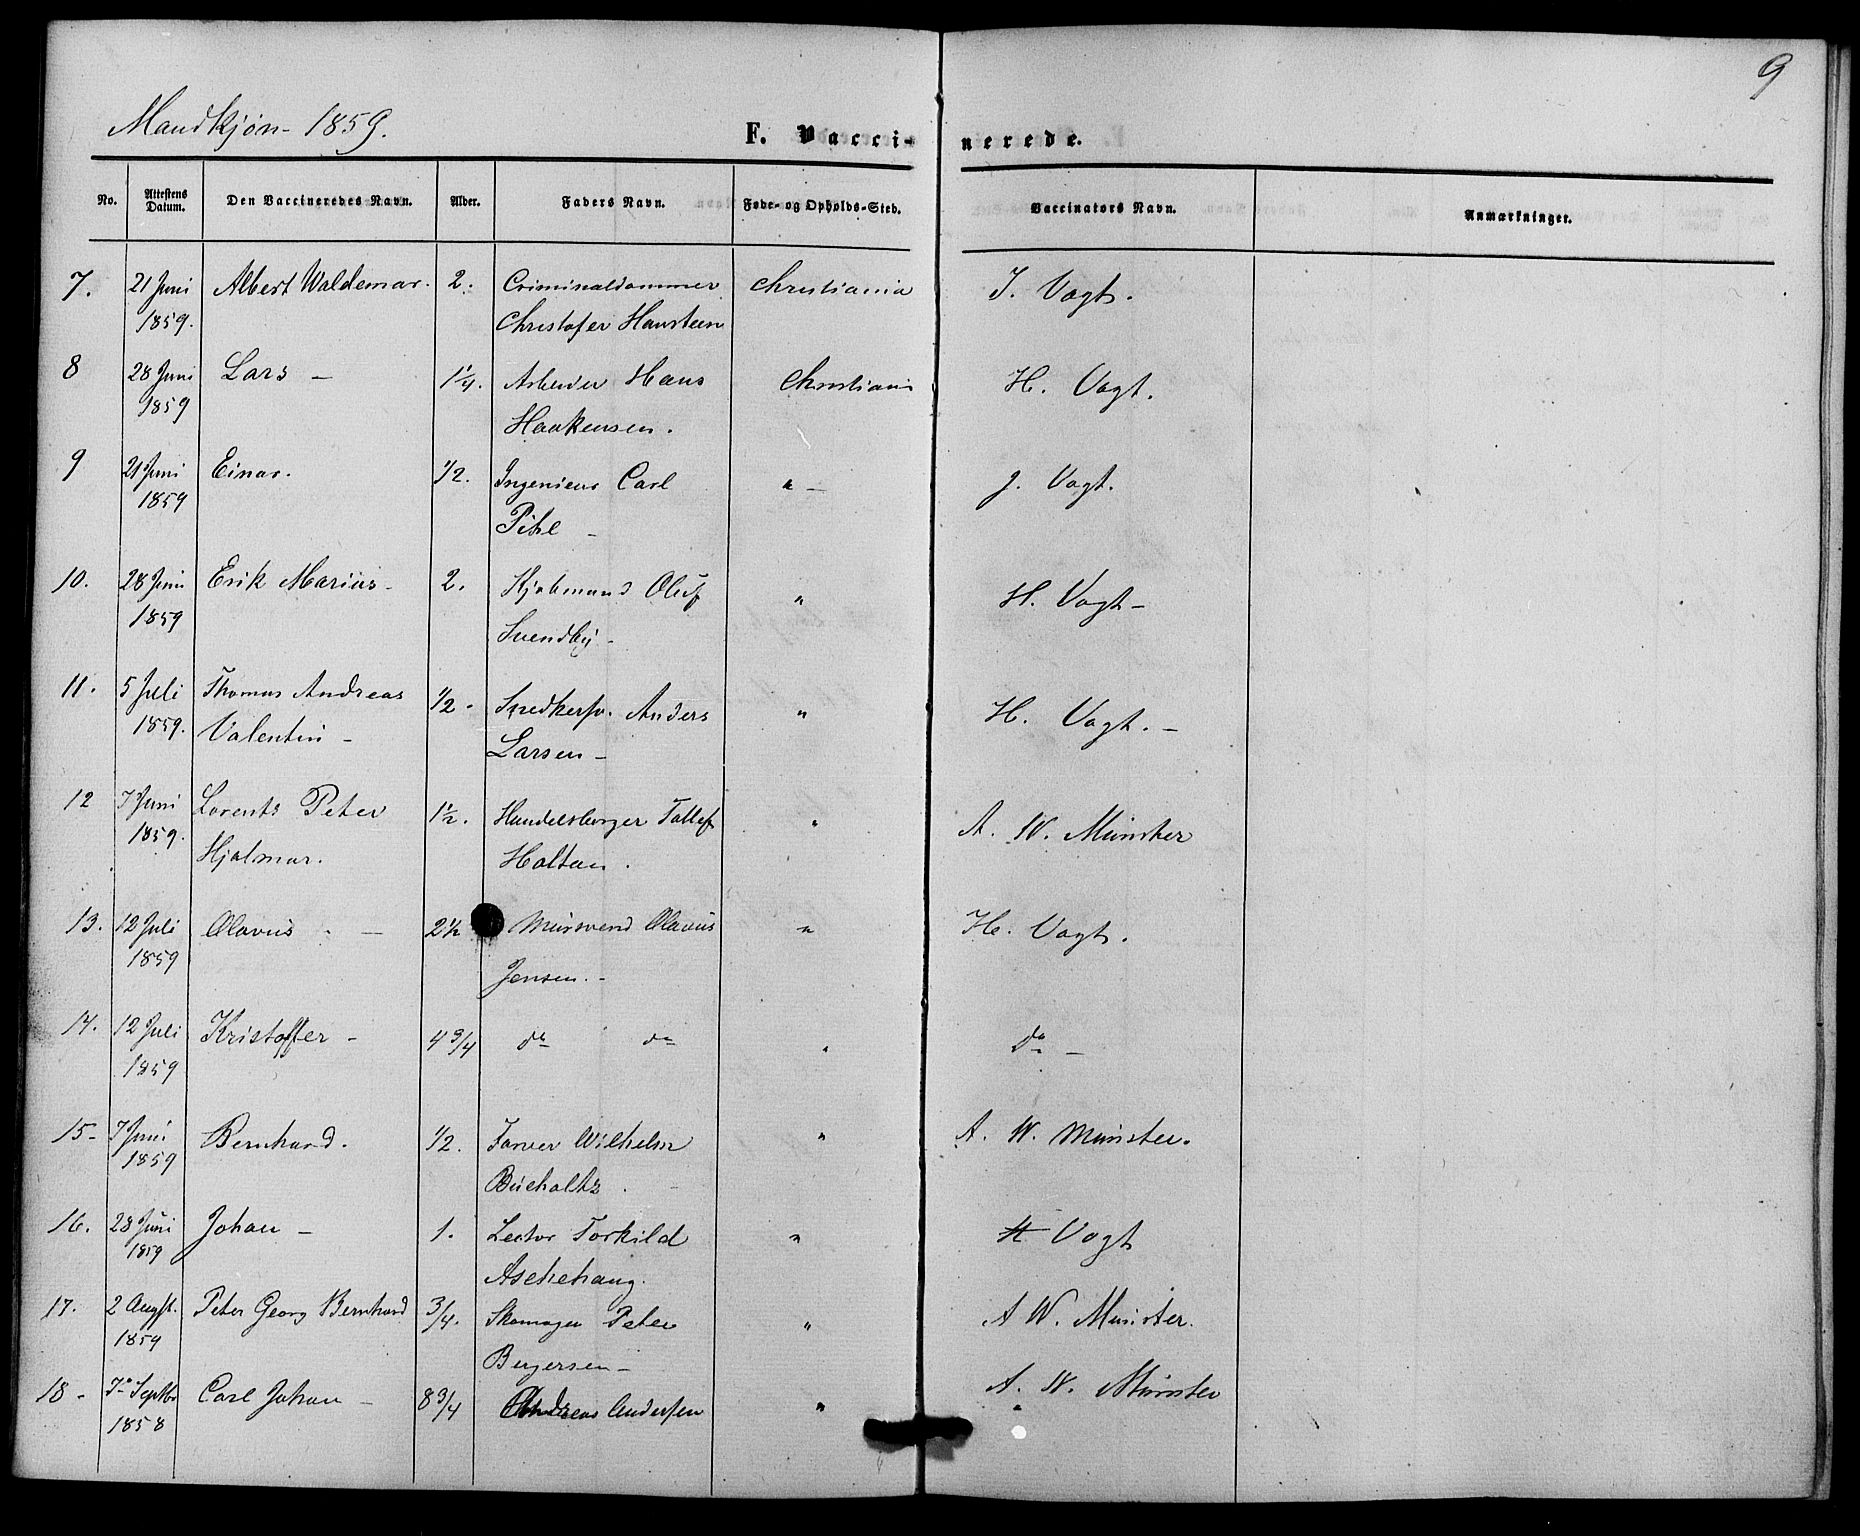 9
Mandkjøn - 1859.
F. Vaccinerede.
No. Attestens Datum. Den Vaccineredes Navn. Alder. Faders Navn. Føde- og Opholds-Sted. Vaccinators Navn. Anmærkninger.
7. 21 Juni Albert Waldemar. 2. Criminaldommer Christiania J. Vogt.
1859. Christofer Hansteen
8 28 Juni Lars - 1 1/4. Arbeider Hans Christiania H. Vogt.
1859 Haakensen.
9 21 Juni Einar. 1/2. Ingenieur Carl " - J. Vogt.
1859 Pihl -
10. 28 Juni Erik Marius - 2. Kjøbmand Oluf " H. Vogt -
1859 Svendby -
11. 5 Juli Thomas Andreas 1/2. Snedkersv. Anders " H. Vogt. -
1859. Valentin - Larsen -
12 7 Juni Lorents Peter 1 1/2. Handelsborger Tollef " A. W. Münster
1859. Hjalmar. Holtan.
13. 12 Juli Olavus - 2 1/2 Mursvend Olavus " H. Vogt.
1859 Jensen. -
14. 12 Juli Kristoffer - 4 3/4 do do " do -
1859
15 - 7 Juni Bernhard. 1/2. Farver Wilhelm " A. W. Münster.
1859 Bucholtz. -
16. 28 Juni Johan - 1. Lector Torkild " H Vogt
1859 Aschehoug.
17. 2 August. Peter Georg Bernhard 3/4. Skomager Peter " A W. Münster.
1859 Bergersen -
18 - 7de Septbr Carl Johan - 8 3/4 Andreas Andersen " A. W. Münster
1858 "